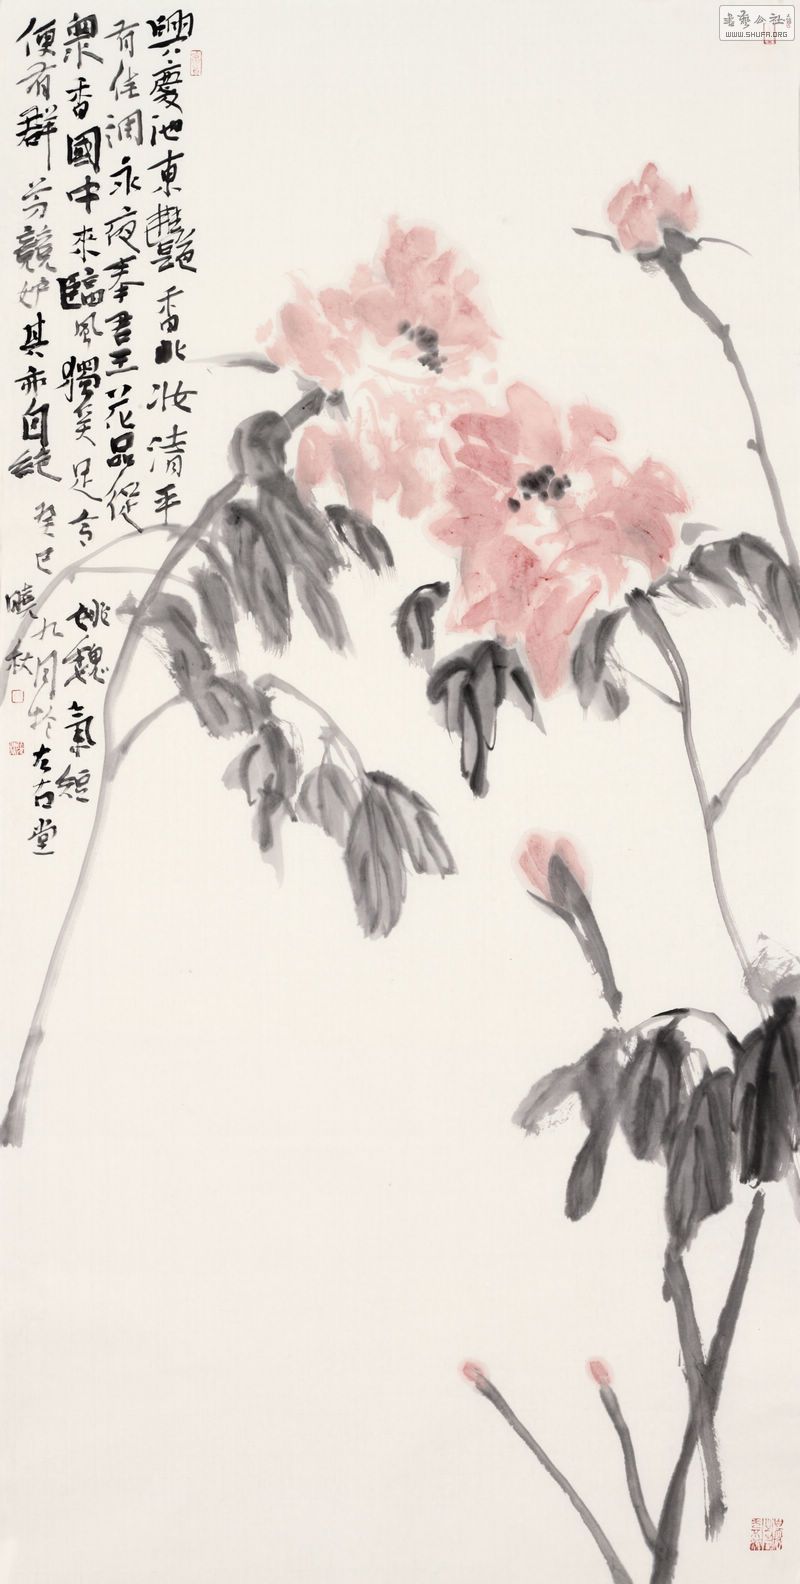 興慶池東艷香北妝清平
有佳調永夜奉君王花品從
衆香國中來臨風獨笑足言姚魏氣短
便有群芳競妒其亦自絶癸巳九月於大古堂
曉秋
書藝公社
www.SHUFA.ORG